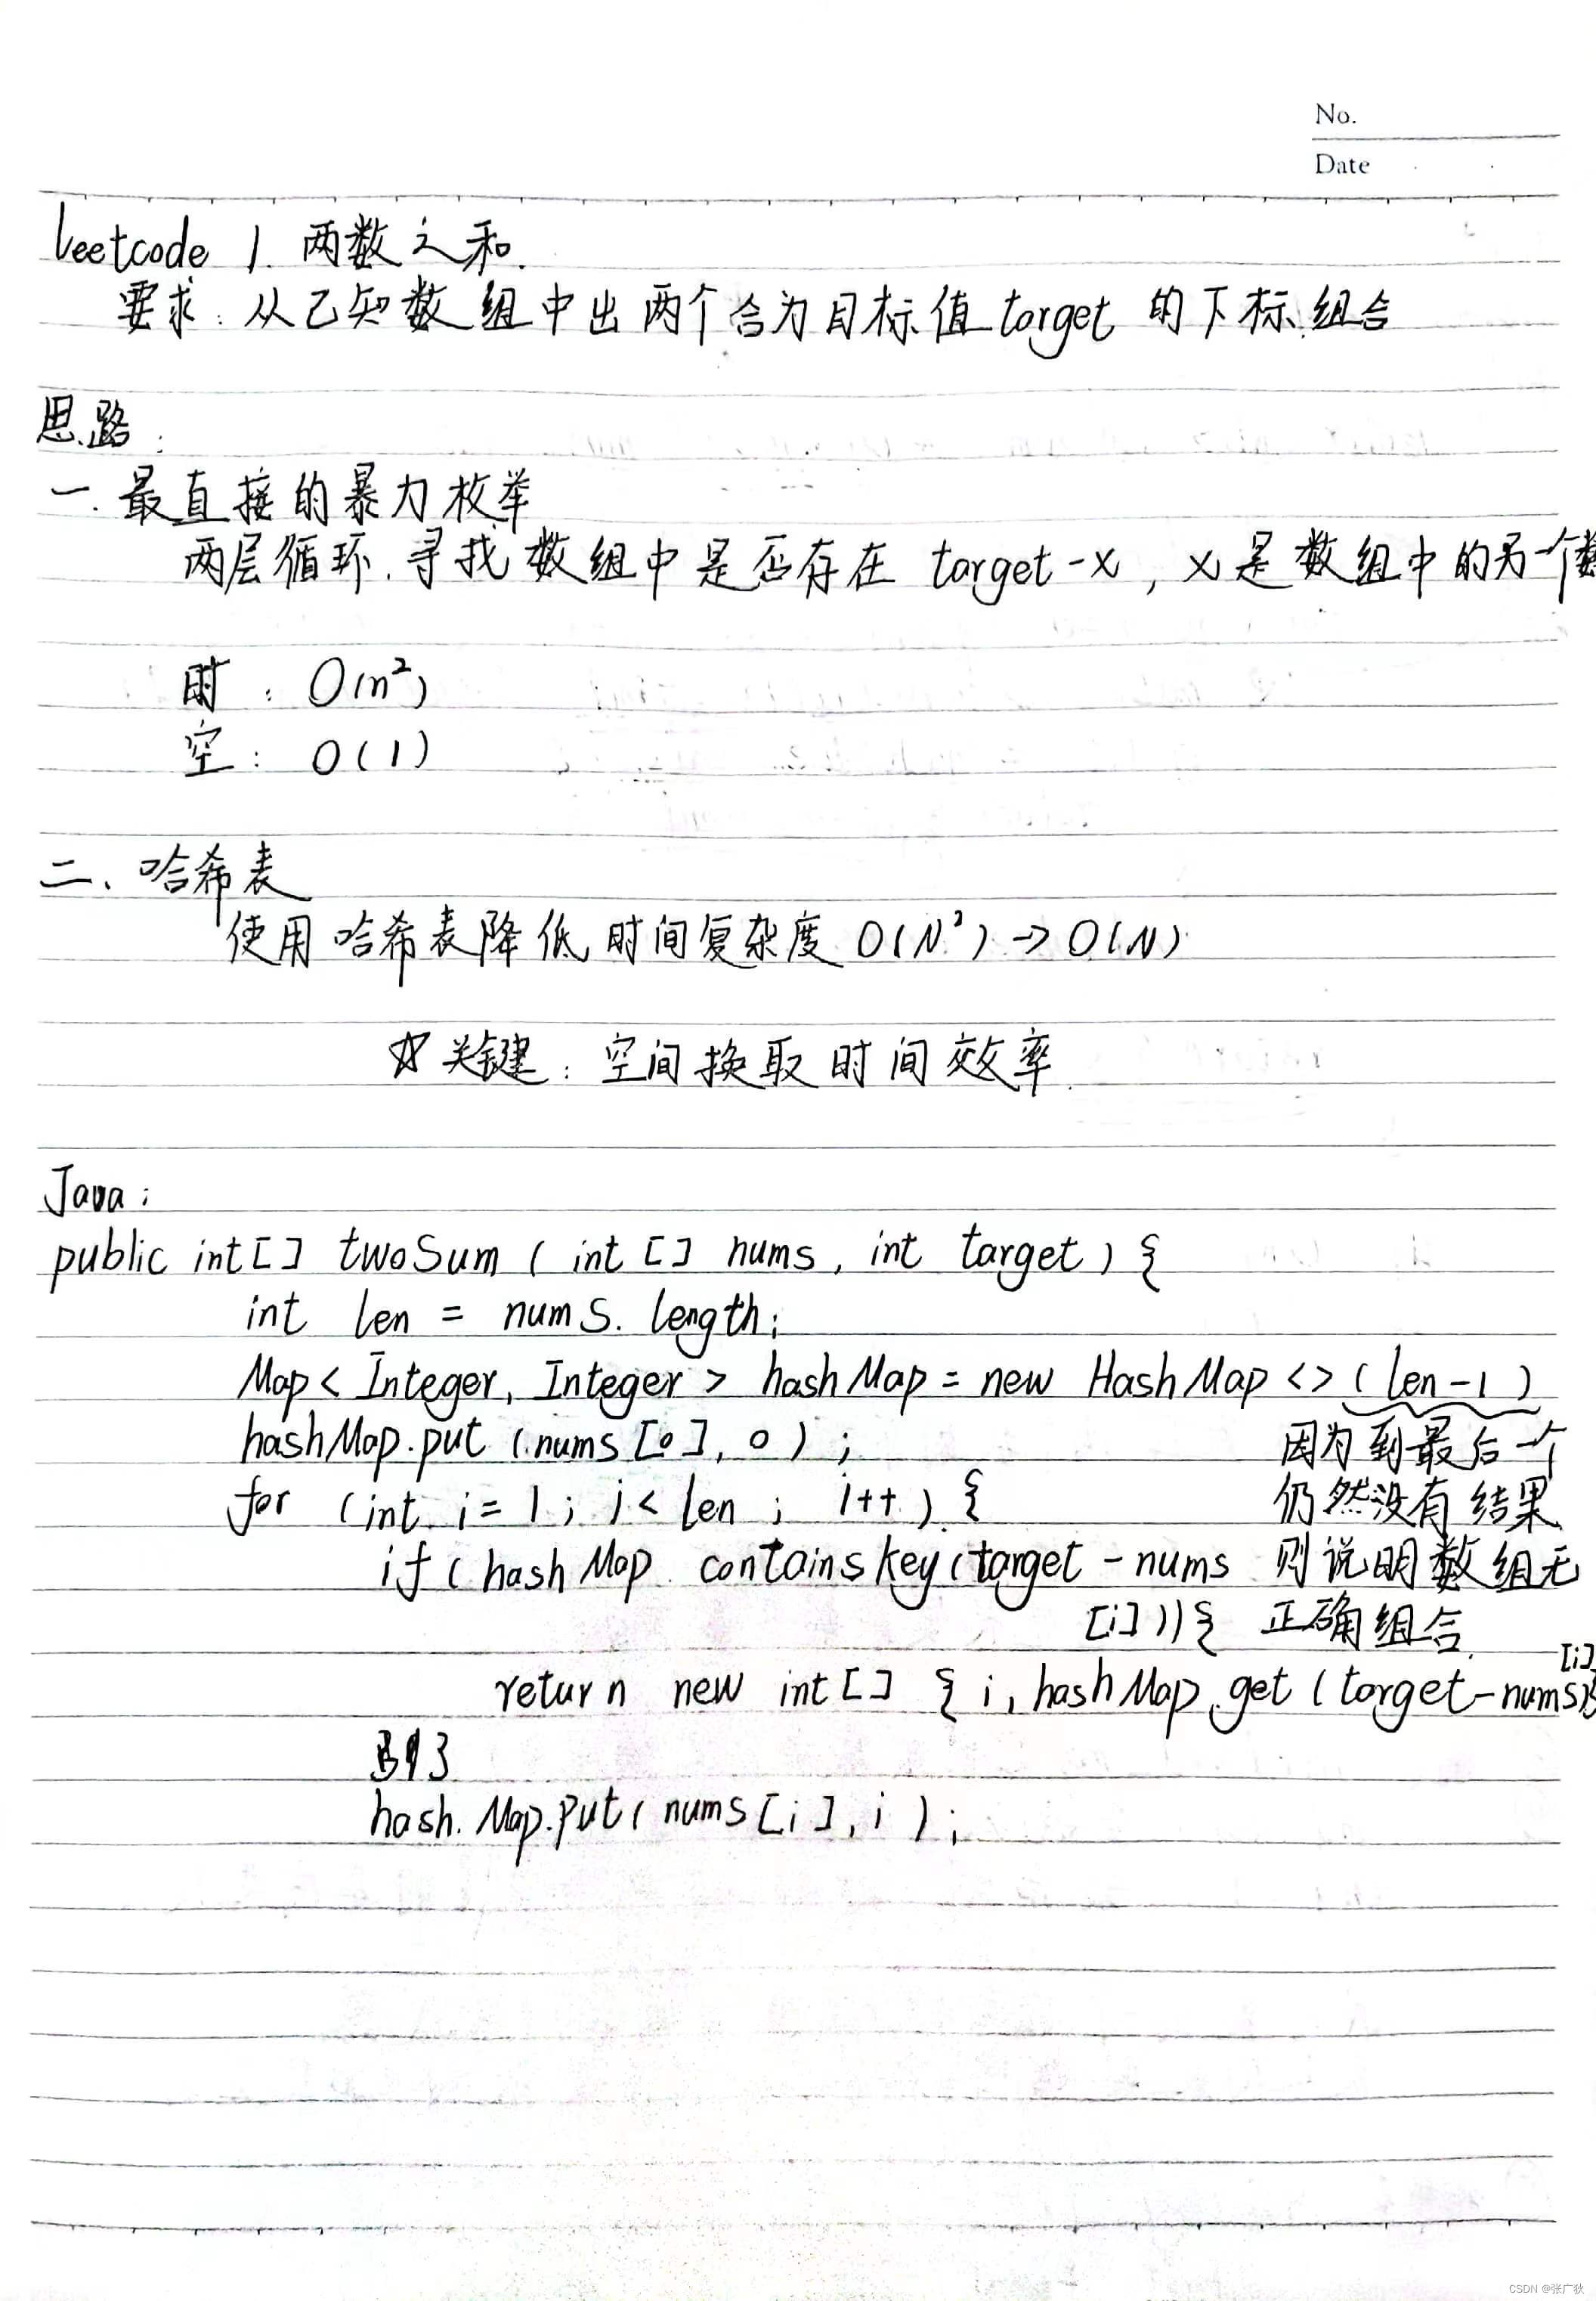 No.
Date
leetcode 1. 两数之和.
要求: 从已知数组中出两个合为目标值target 的下标组合
思路:
一. 最直接的暴力枚举
两层循环. 寻找数组中是否存在 target-x, x是数组中的另一个数
时: O(n²)
空: O(1)
二、哈希表
使用哈希表降低时间复杂度 O(N²)→O(N)
☆关键: 空间换取时间效率.
Java:
public int[] twoSum ( int[] nums, int target) {
int len = nums.length;
Map< Integer, Integer > hashMap = new HashMap <> (len-1)
hashMap.put (nums[0], 0) ; 因为到最后一个
for (int i=1; i< len ; i++) { 仍然没有结果
if ( hashMap. containskey(target - nums 则说明数组无
[i])){ 正确组合.
return new int[] { i, hashMap.get (target-nums[i])}
}
hash.Map.put( nums[i], i );
CSDN @张广狄